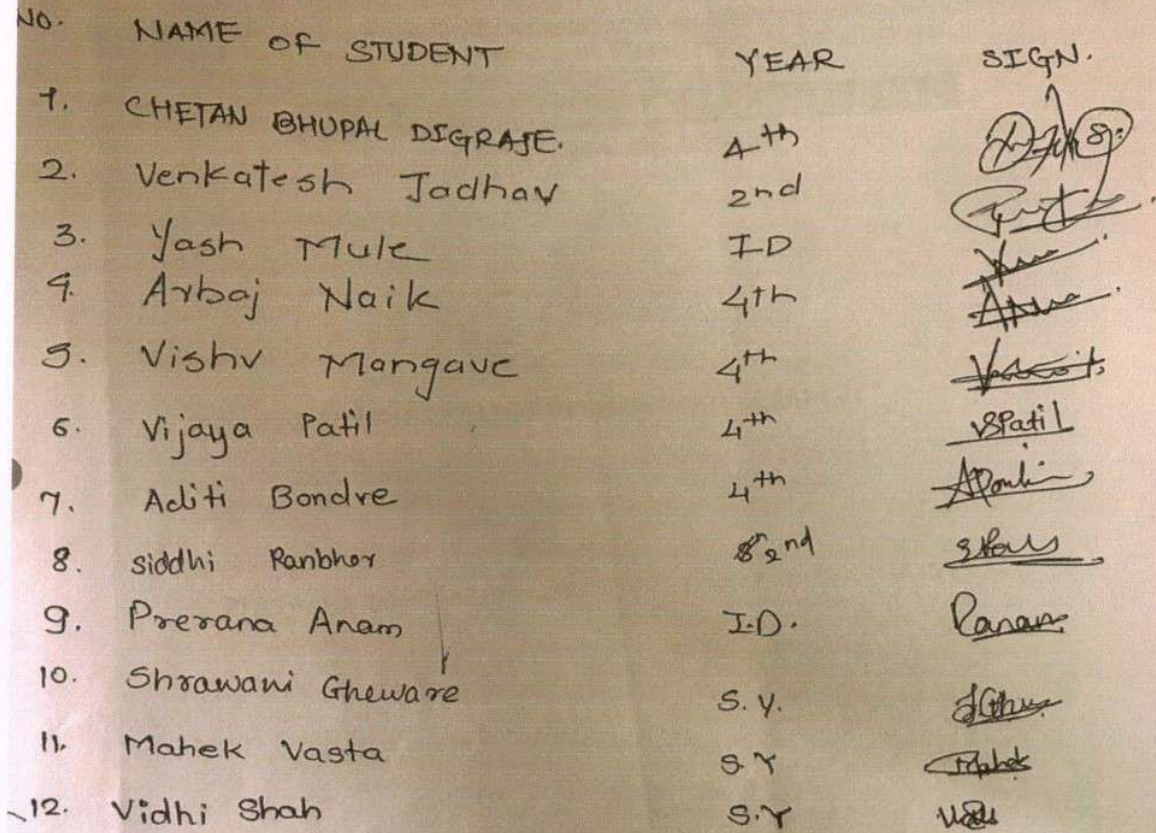 NO. NAME OF STUDENT YEAR SIGN.
1. CHETAN BHUPAL DIGRAJE. 4th
2. Venkatesh Jadhav 2nd
3. Yash Mule I D
4. Arbaj Naik 4th
5. Vishv Mangave 4th
6. Vijaya Patil 4th VSPatil
7. Aditi Bondre 4th
8. Siddhi Ranbhor 2nd
9. Prerana Anam I.D.
10. Shrawani Gheware S.Y.
11. Mahek Vasta S.Y Mahek
12. Vidhi Shah S.Y